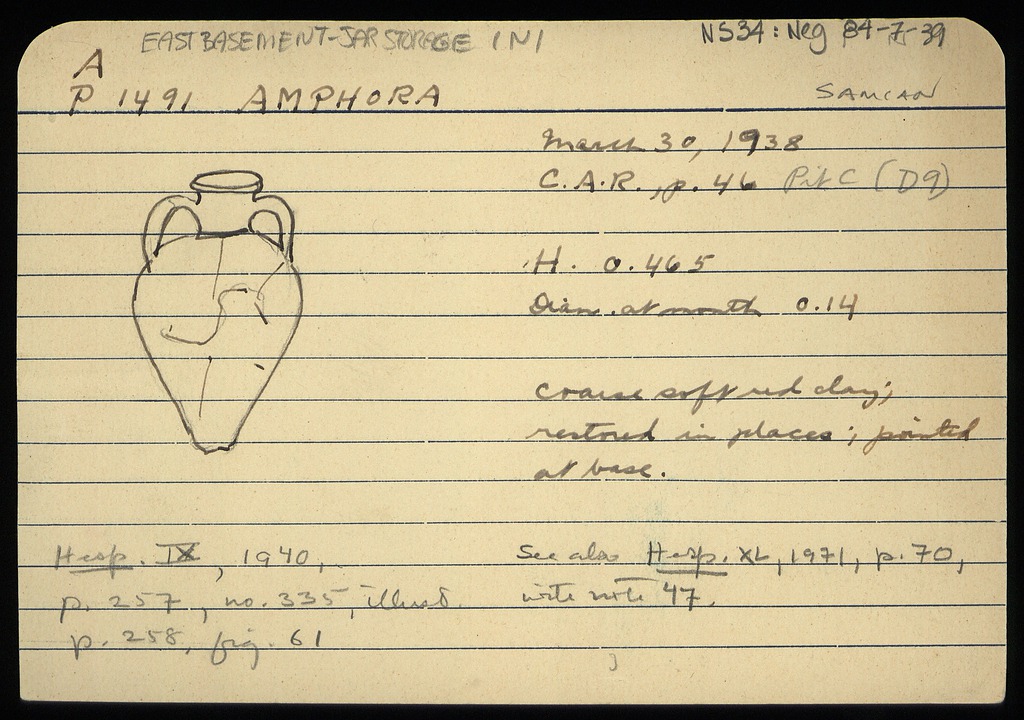 EAST BASEMENT-JAR STORAGE 1 N 1
NS34: Neg 84-7-39
A
P 1491 AMPHORA
SAMIAN
March 30, 1938
C.A.R., p. 46 Pit C (D9)
H. 0.465
Diam. at mouth 0.14
Coarse soft red clay;
restored in places; pointed
at base.
Hesp. IX, 1940,
p. 257, no. 335, illust.
p. 258, fig. 61
See also Hesp. XL, 1971, p. 70,
with note 47.